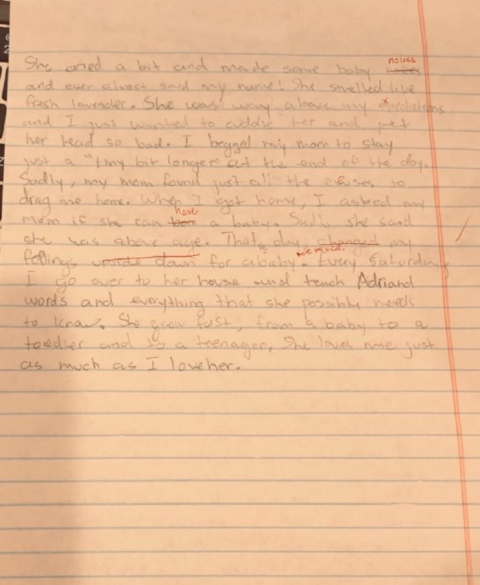 She cried a bit and made some baby noises
and even almost said my name! She smelled like
fresh lavender. She was way above my expectations
and I just wanted to cuddle her and pet
her head so bad. I begged my mom to stay
just a "tiny bit longer" at the end of the day.
Sadly, my mom found just all the excuses to
drag me home. When I got home, I asked my
mom if she can have a baby. Sadly she said
she was above age. That day, changed my
feelings upside down for a baby. Every Saturday
I go over to her house and teach Adriand
words and everything that she possibly needs
to know. She grew fast, from a baby to a
toddler and to a teenager. She loves me just
as much as I love her.